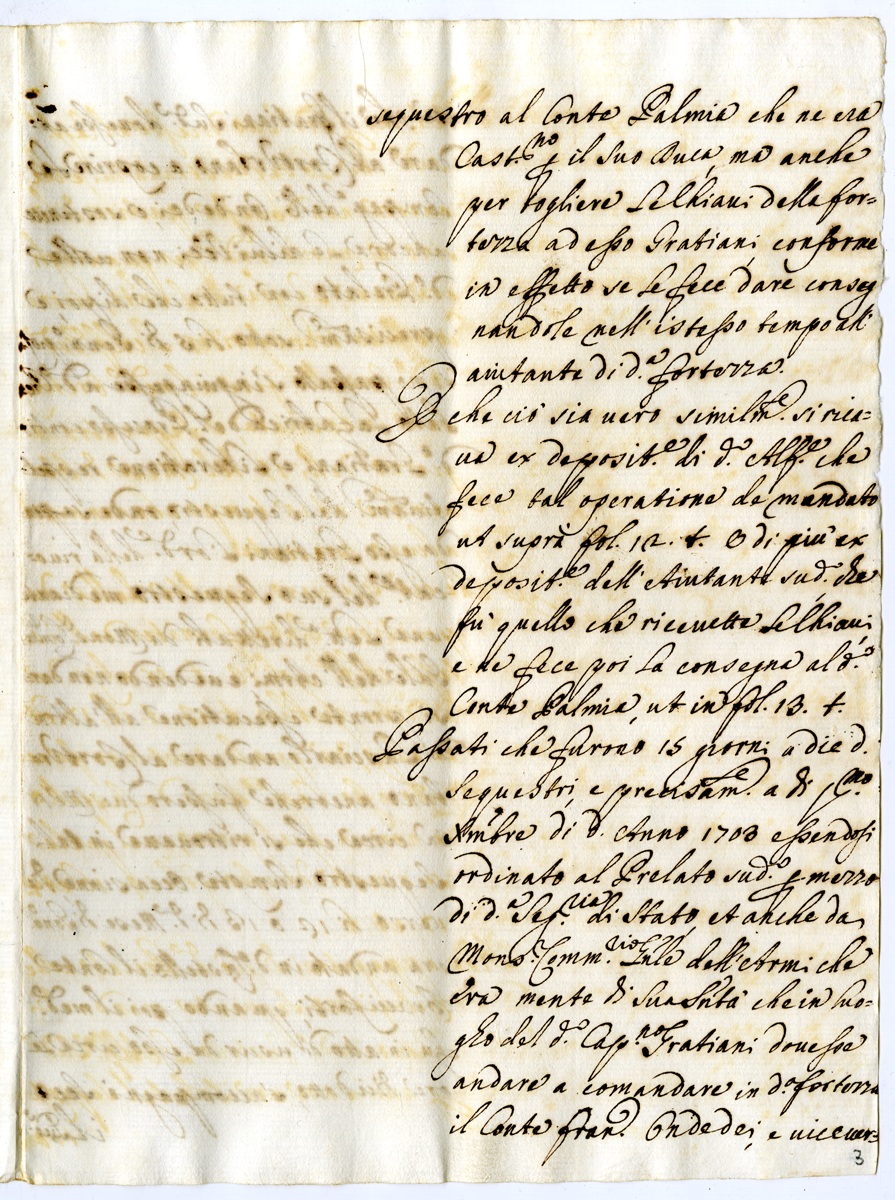 sequestro al Conte Palmia che ne era
Cast.no p il suo Duca, mà anche
per togliere le Chiaui della for=
tezza ad esso Gratiani, conforme
in effetto se le fece dare conseg
nandole nell'istesso tempo all'
aiutante di d.a fortezza.
E che ciò sia uero similm.e si rica=
ua ex deposit.e di d.o Alf.e che
fece tal operatione de mandato
ut suprà fol. 12. t. E di più ex
deposit.e dell'Aiutante sud.o che
fù quello che riceuette le Chiaui
e ne fece poi la consegna al d.o
Conte Palmia, ut in fol. 13. t.
Passati che furono 15 giorni a die d.
sequestri, e precisam.e a di p.mo
Xmbre di d. Anno 1703 essendosi
ordinato al Prelato sud.o p mezzo
di d.a Seg.ria di Stato, et anche da
Mons.r Comm.rio Gnle dell'Armi che
era mente di Sua Sntà che in luo=
gho del d.o Cap.no Gratiani douesse
andare a comandare in d.a fortezza
il Conte Fran.o Ondedei, e uiceuer=
3